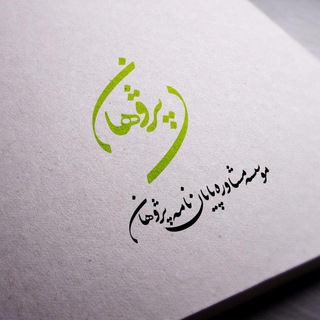 پژوهان
موسسه مشاوره پایان نامه پژوهان